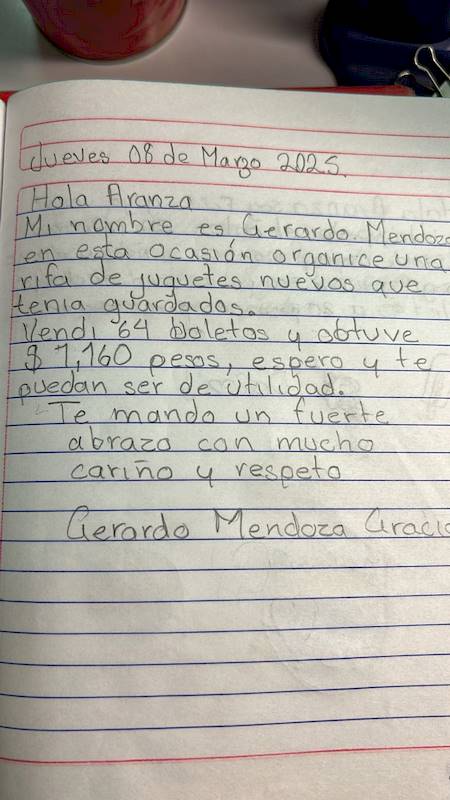 Jueves 08 de Marzo 2025.
Hola Aranza
Mi nombre es Gerardo Mendoza
en esta ocasión organice una
rifa de juguetes nuevos que
tenia guardados.
Vendi 64 boletos y obtuve
$ 1,160 pesos, espero y te
puedan ser de utilidad.
Te mando un fuerte
abrazo con mucho
cariño y respeto
Gerardo Mendoza Gracia